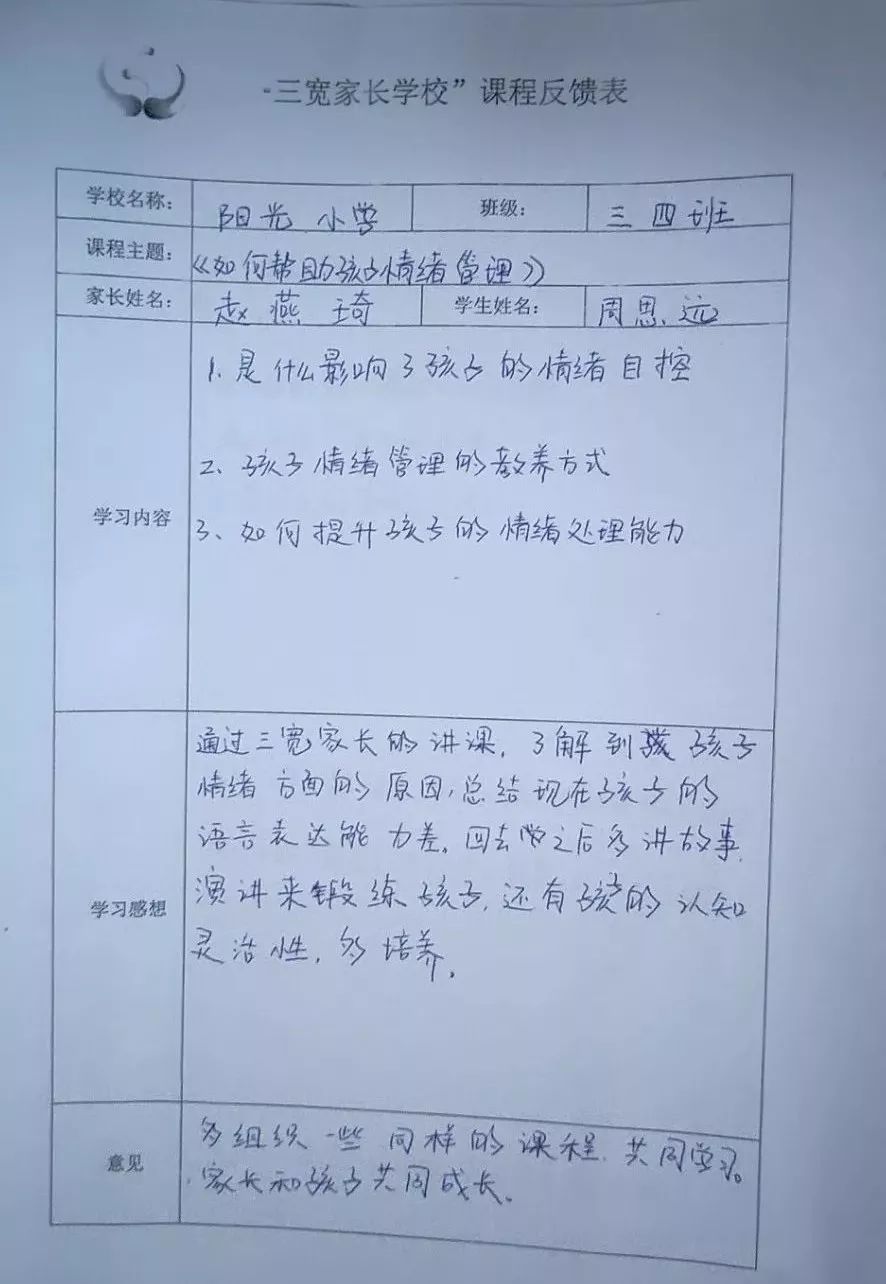 “三宽家长学校”课程反馈表
学校名称: 阳光小学 班级: 三四班
课程主题: 《如何帮助孩子情绪管理》
家长姓名: 赵燕琦 学生姓名: 周思远
学习内容
1. 是什么影响了孩子的情绪自控
2、孩子情绪管理的教养方式
3、如何提升孩子的情绪处理能力
学习感想
通过三宽家长的讲课，了解到孩子
情绪方面的原因，总结现在孩子的
语言表达能力差。回去之后多讲故事
演讲来锻练孩子，还有孩子的认知
灵活性，多培养。
意见
多组织一些同样的课程，共同学习。
家长和孩子共同成长。